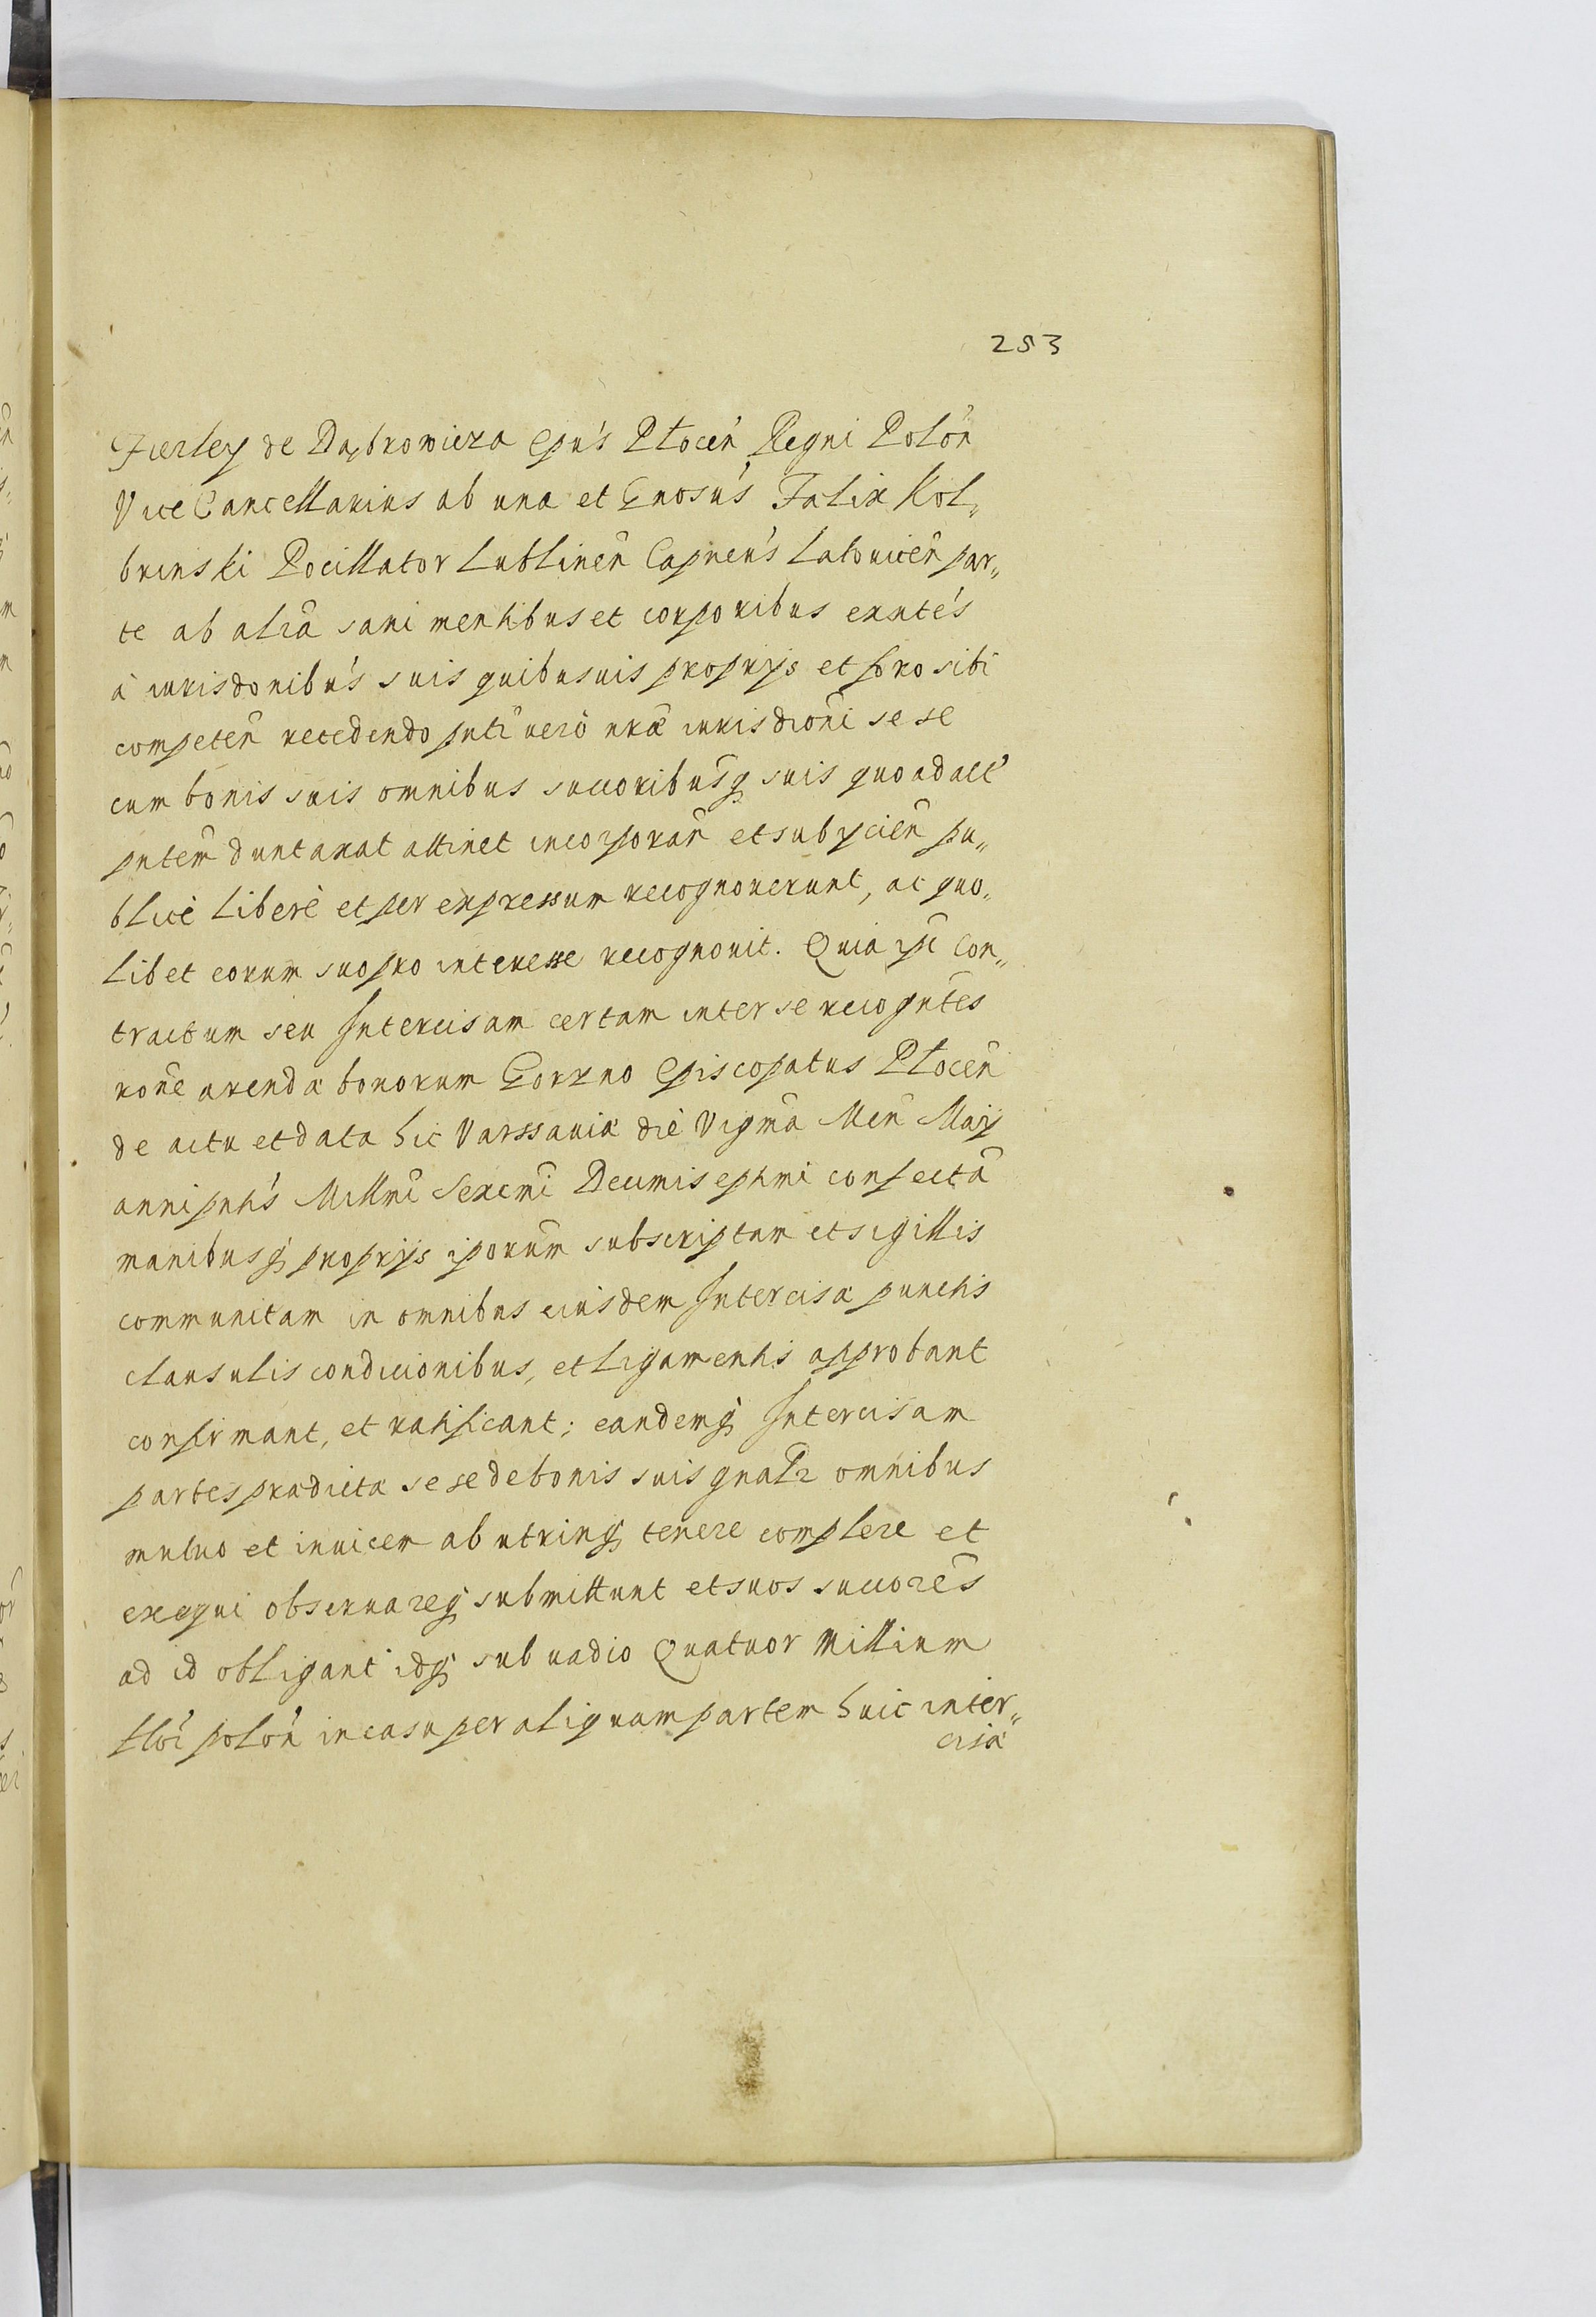 253
Fierley de Dąbrowicza Epu's Plocen̄ Regni Polon̄
Vice Cancellarius ab una et Gnosu's Fælix Kol„
brinski Pocillator Lublinen̄ Capneu's Latouicen̄ par„
te ab altā sani mentibus et corporibus exnte's
à iurisdonibu's suis quibusuis proprijs et foro sibi
competen̄ recedendo pnti uerò nr̄æ iurisdioñi se se
cum bonis suis omnibus succoribusq̃ suis quoad act̄
pntem̄ duntaxat attinet incorporan̄ et subycien̄ pu„
blicè liberè et per expressum recognouerunt, ac quo„
libet eorum suo pro interesse recognouit. Quia ipi con„
tractum seu Intercisam certam inter se recogntes
rone̅ arendæ bonorum Gorzno Episcopatus Plocen̄
de actu et data hic Varssauiæ die Vigma̅ Men̄ Maij
anni pnti's Millmi Sexcmi̅ Decimi septmi confecta̅
manibusq̃ proprijs iporum̄ subscriptam et sigillis
communitam in omnibus eiusdem Intercisæ punctis
clausulis condicionibus, et ligamentis approbant
confirmant, et ratificant; eandemq̃ Intercisam
partes prædictæ se se de bonis suis gnalr omnibus
mutuo et inuicem ab utrinq̃ tenere complere et
exequi obseruareq̃ submittunt et suos succore̅s
ad id obligant idq̃ sub uadio Quatuor Millium
flor̄ polon̄ in casu per aliquam partem huic inter„
cisæ